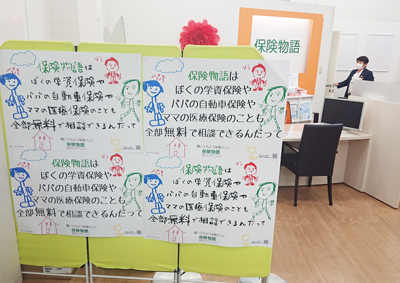 保険物語は
ぼくの学資保険や
パパの自動車保険や
ママの医療保険のことも
全部無料で相談できるんだって
保険物語
保険物語は
ぼくの学資保険や
パパの自動車保険や
ママの医療保険のことも
全部無料で相談できるんだって
保険物語
保険物語は
ぼくの学資保険や
パパの自動車保険や
ママの医療保険のことも
全部無料で相談できるんだって
保険物語
保険物語は
ぼくの学資保険や
パパの自動車保険や
ママの医療保険のことも
全部無料で相談できるんだって
保険物語
保険物語